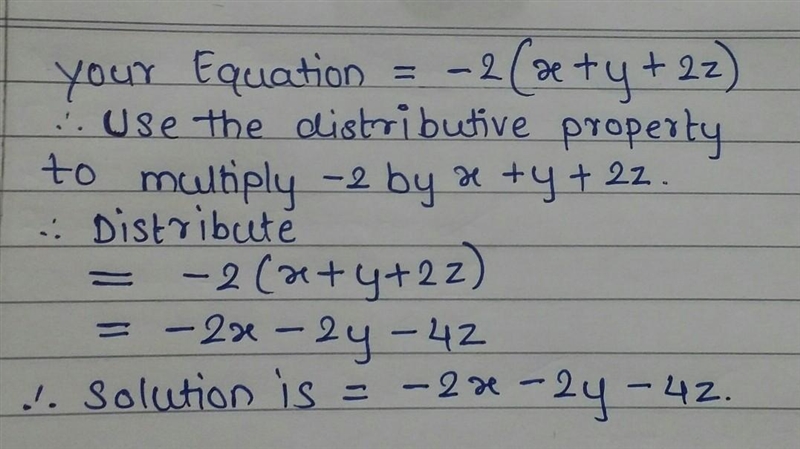 your Equation = -2(x+y+2z)
∴ Use the distributive property
to multiply -2 by x+y+2z.
∴ Distribute
= -2(x+y+2z)
= -2x-2y-4z
∴ Solution is = -2x-2y-4z.